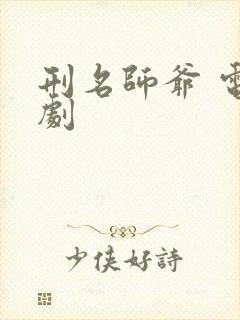 刑名師爺 電
劇
少俠好詩